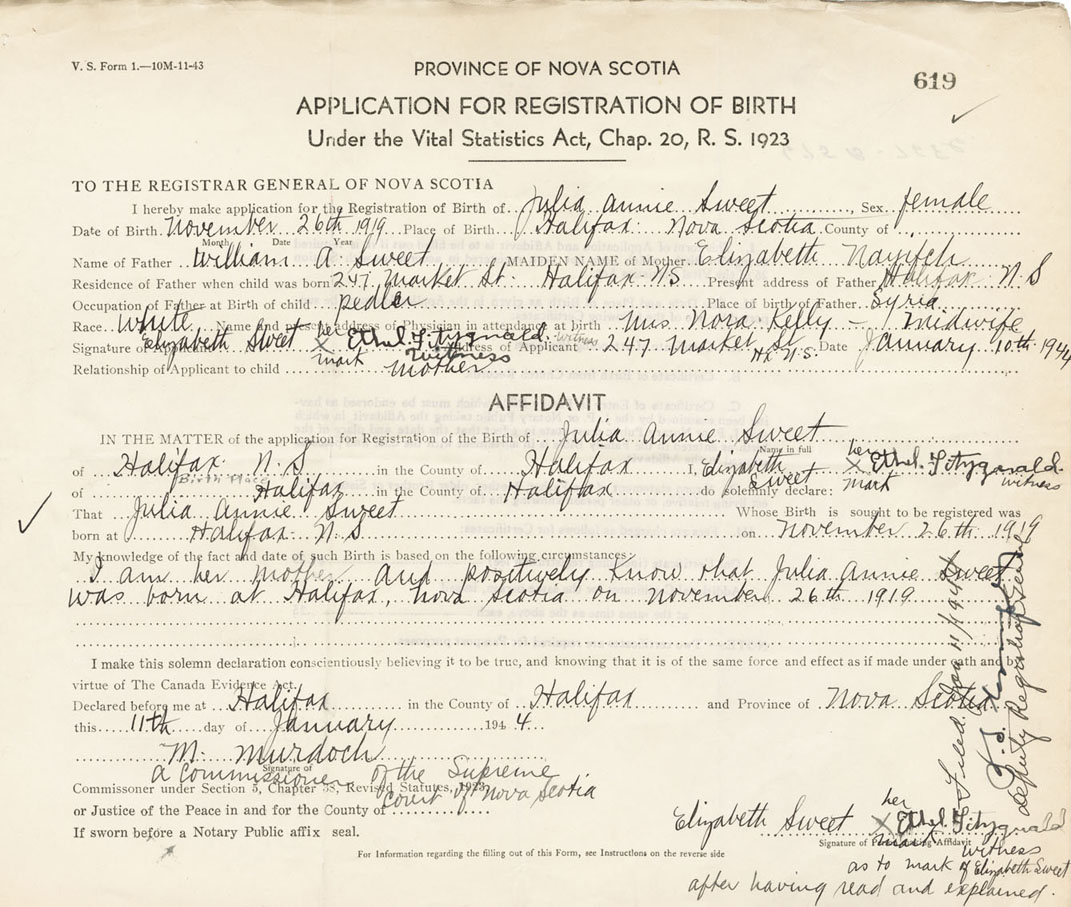 V. S. Form 1.—10M-11-43
PROVINCE OF NOVA SCOTIA
619
APPLICATION FOR REGISTRATION OF BIRTH
Under the Vital Statistics Act, Chap. 20, R. S. 1923
TO THE REGISTRAR GENERAL OF NOVA SCOTIA
I hereby make application for the Registration of Birth of Julia Annie Sweet, Sex female
Date of Birth November 26th 1919 Place of Birth Halifax Nova Scotia County of
Month Date Year
Name of Father William A Sweet MAIDEN NAME of Mother Elizabeth
Residence of Father when child was born 247 Market St. Halifax NS Present address of Father Halifax N S
Occupation of Father at Birth of child pedler Place of birth of Father Syria
Race white Name and present address of Physician in attendance at birth Mrs Nora Kelly – Midwife
Signature of Applicant Elizabeth Sweet her X mark Ethel Fitzgerald witness Address of Applicant 247 Market St Hx N.S. Date January 10th 1944
Relationship of Applicant to child mother
AFFIDAVIT
IN THE MATTER of the application for Registration of the Birth of Julia Annie Sweet
Name in full
of Halifax N. S in the County of Halifax I, Elizabeth Sweet her X mark Ethel Fitzgerald witness
Birth Place
of Halifax in the County of Halifax do solemnly declare:
That Julia Annie Sweet Whose Birth is sought to be registered was
born at Halifax N. S on November 26th 1919
My knowledge of the fact and date of such Birth is based on the following circumstances:
I am her mother and positively know that Julia Annie Sweet
was born at Halifax, Nova Scotia on November 26th 1919
I make this solemn declaration conscientiously believing it to be true, and knowing that it is of the same force and effect as if made under oath and by
virtue of The Canada Evidence Act.
Declared before me at Halifax in the County of Halifax and Province of Nova Scotia
this 11th day of January 1944.
M. Murdoch
Signature of
a commissioner of the Supreme
Commissioner under Section 5, Chapter 38, Revised Statutes, 1923,
court of Nova Scotia
or Justice of the Peace in and for the County of
If sworn before a Notary Public affix seal.
Elizabeth Sweet her X mark Ethel Fitzgerald
Signature of Affidavit
witness
as to mark of Elizabeth Sweet
after having read and explained.
For Information regarding the filling out of this Form, see Instructions on the reverse side
Filed Jan 11/1944
Deputy Registrar General